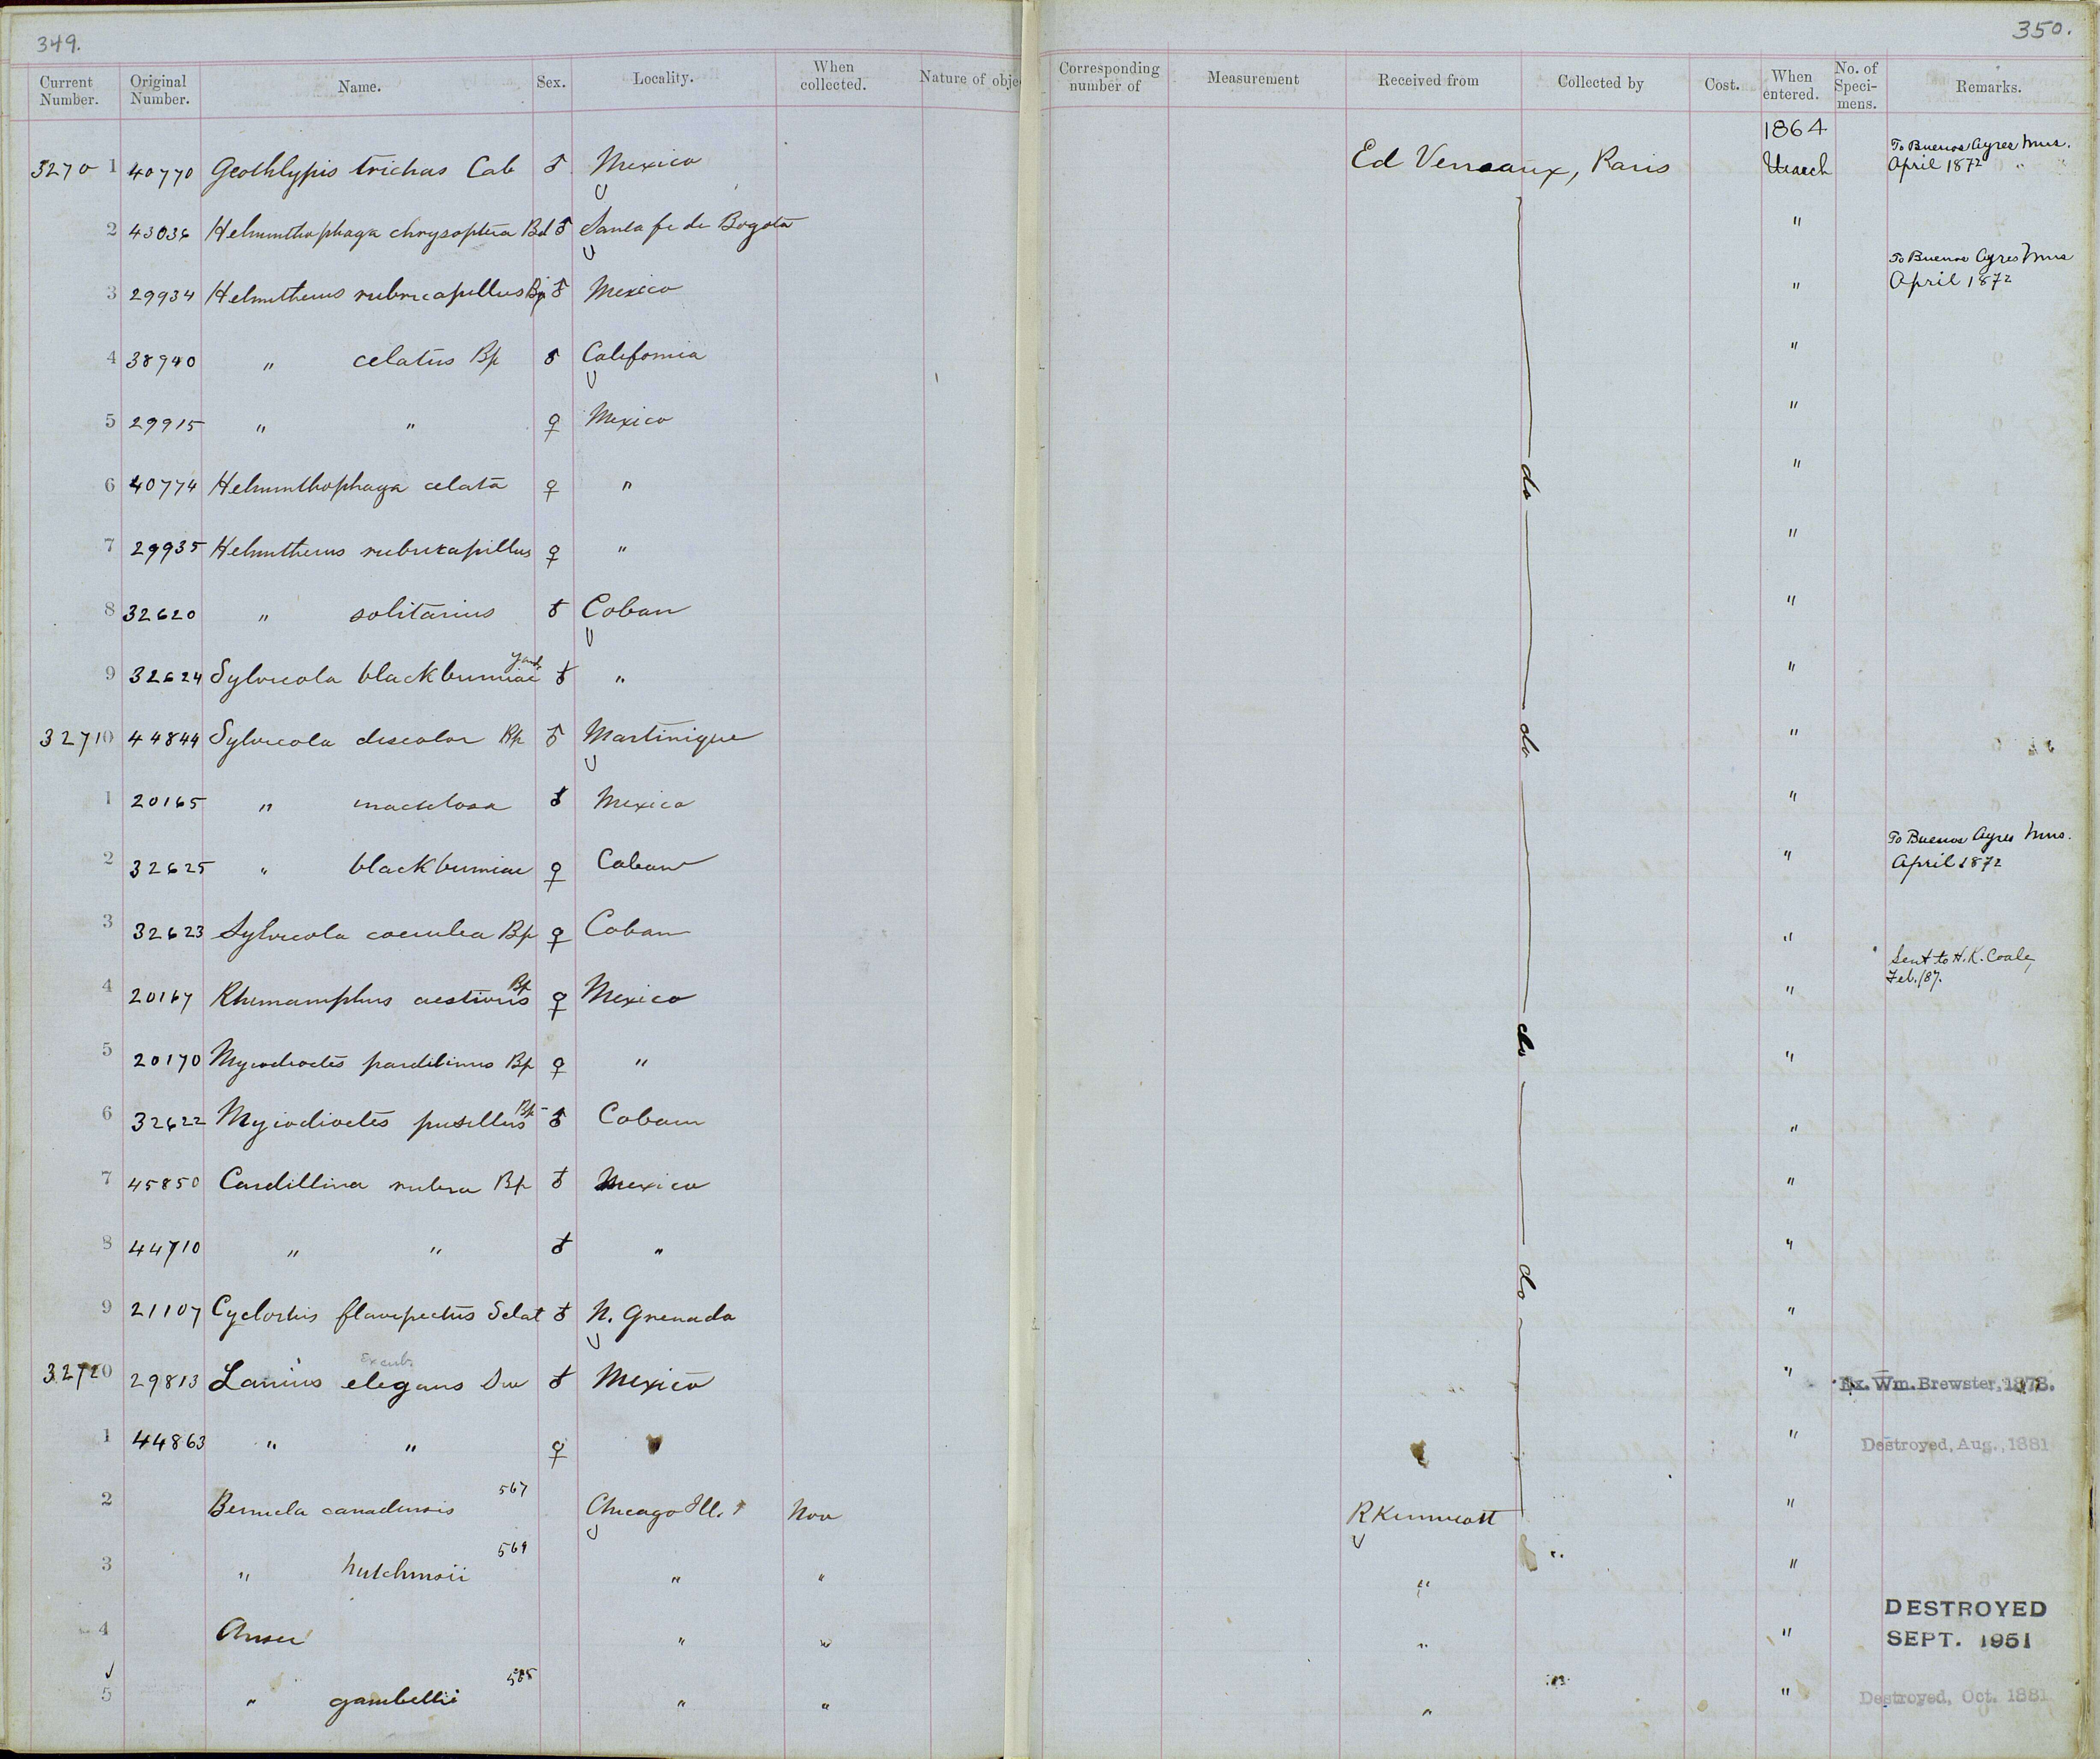 349.
350.
Current Number. Original Number. Name. Sex. Locality. When collected. Nature of obje Corresponding number of Measurement Received from Collected by Cost. When entered. No. of Speci-mens. Remarks.
1864
32701 40770 Geothlypis trichas Cab ♂ Mexico Ed Verreaux, Paris March To Buenos Ayres Mus. April 1872
2 43036 Helminthophaga chrysoptera Bd ♂ Santa fe de Bogota "
3 29934 Helmitherus rubricapillus Bp ♂ Mexico " To Buenos Ayres Mus April 1872
4 38940 " celatus Bp ♂ California "
5 29915 " " ♀ Mexico "
6 40774 Helminthophaga celata ♀ " do "
7 29935 Helmitherus rubricapillus ♀ " "
8 32620 " solitarius ♂ Coban "
9 32624 Sylvicola blackburniae Jard ♂ " "
32710 44844 Sylvicola discolor Bp ♂ Martinique do "
1 20165 " maculosa ♂ Mexico "
2 32625 " blackburniae ♀ Coban " To Buenos Ayres Mus. April 1872
3 32623 Sylvicola coerulea Bp ♀ Coban "
4 20167 Rhimamphus aestivus Bp ♀ Mexico " Sent to H.K. Coale, Feb. /87.
5 20170 Myiodioctes pardilinus Bp ♀ " do "
6 32622 Myiodioctes pusillus Bp ♂ Coban "
7 45850 Cardillina rubra Bp ♂ Mexico "
8 44710 " " ♂ " "
9 21107 Cyclorhis flavipectus Sclat ♂ N. Grenada do "
32720 29813 Lanius elegans Sw excub. ♂ Mexico " Ex. Wm. Brewster, 1878.
1 44863 " " ♀ " Destroyed, Aug., 1881
2 Bernicla canadensis 567 Chicago Ill. Nov R Kennicott "
3 " hutchinsii 569 " " " "
4 Anser " " " " DESTROYED SEPT. 1951
5 " gambellii 565 " " " " Destroyed, Oct. 1881